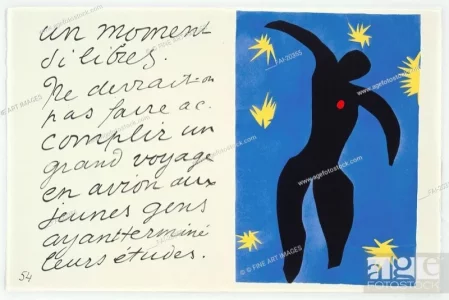 un moment
si libres.
Ne devrait-on
pas faire ac-
complir un
grand voyage
en avion aux
jeunes gens
ayant terminé
leurs études.
54
© FINE ART IMAGES
www.agefotostock.com
FAI-20355
age
FOTOSTOCK